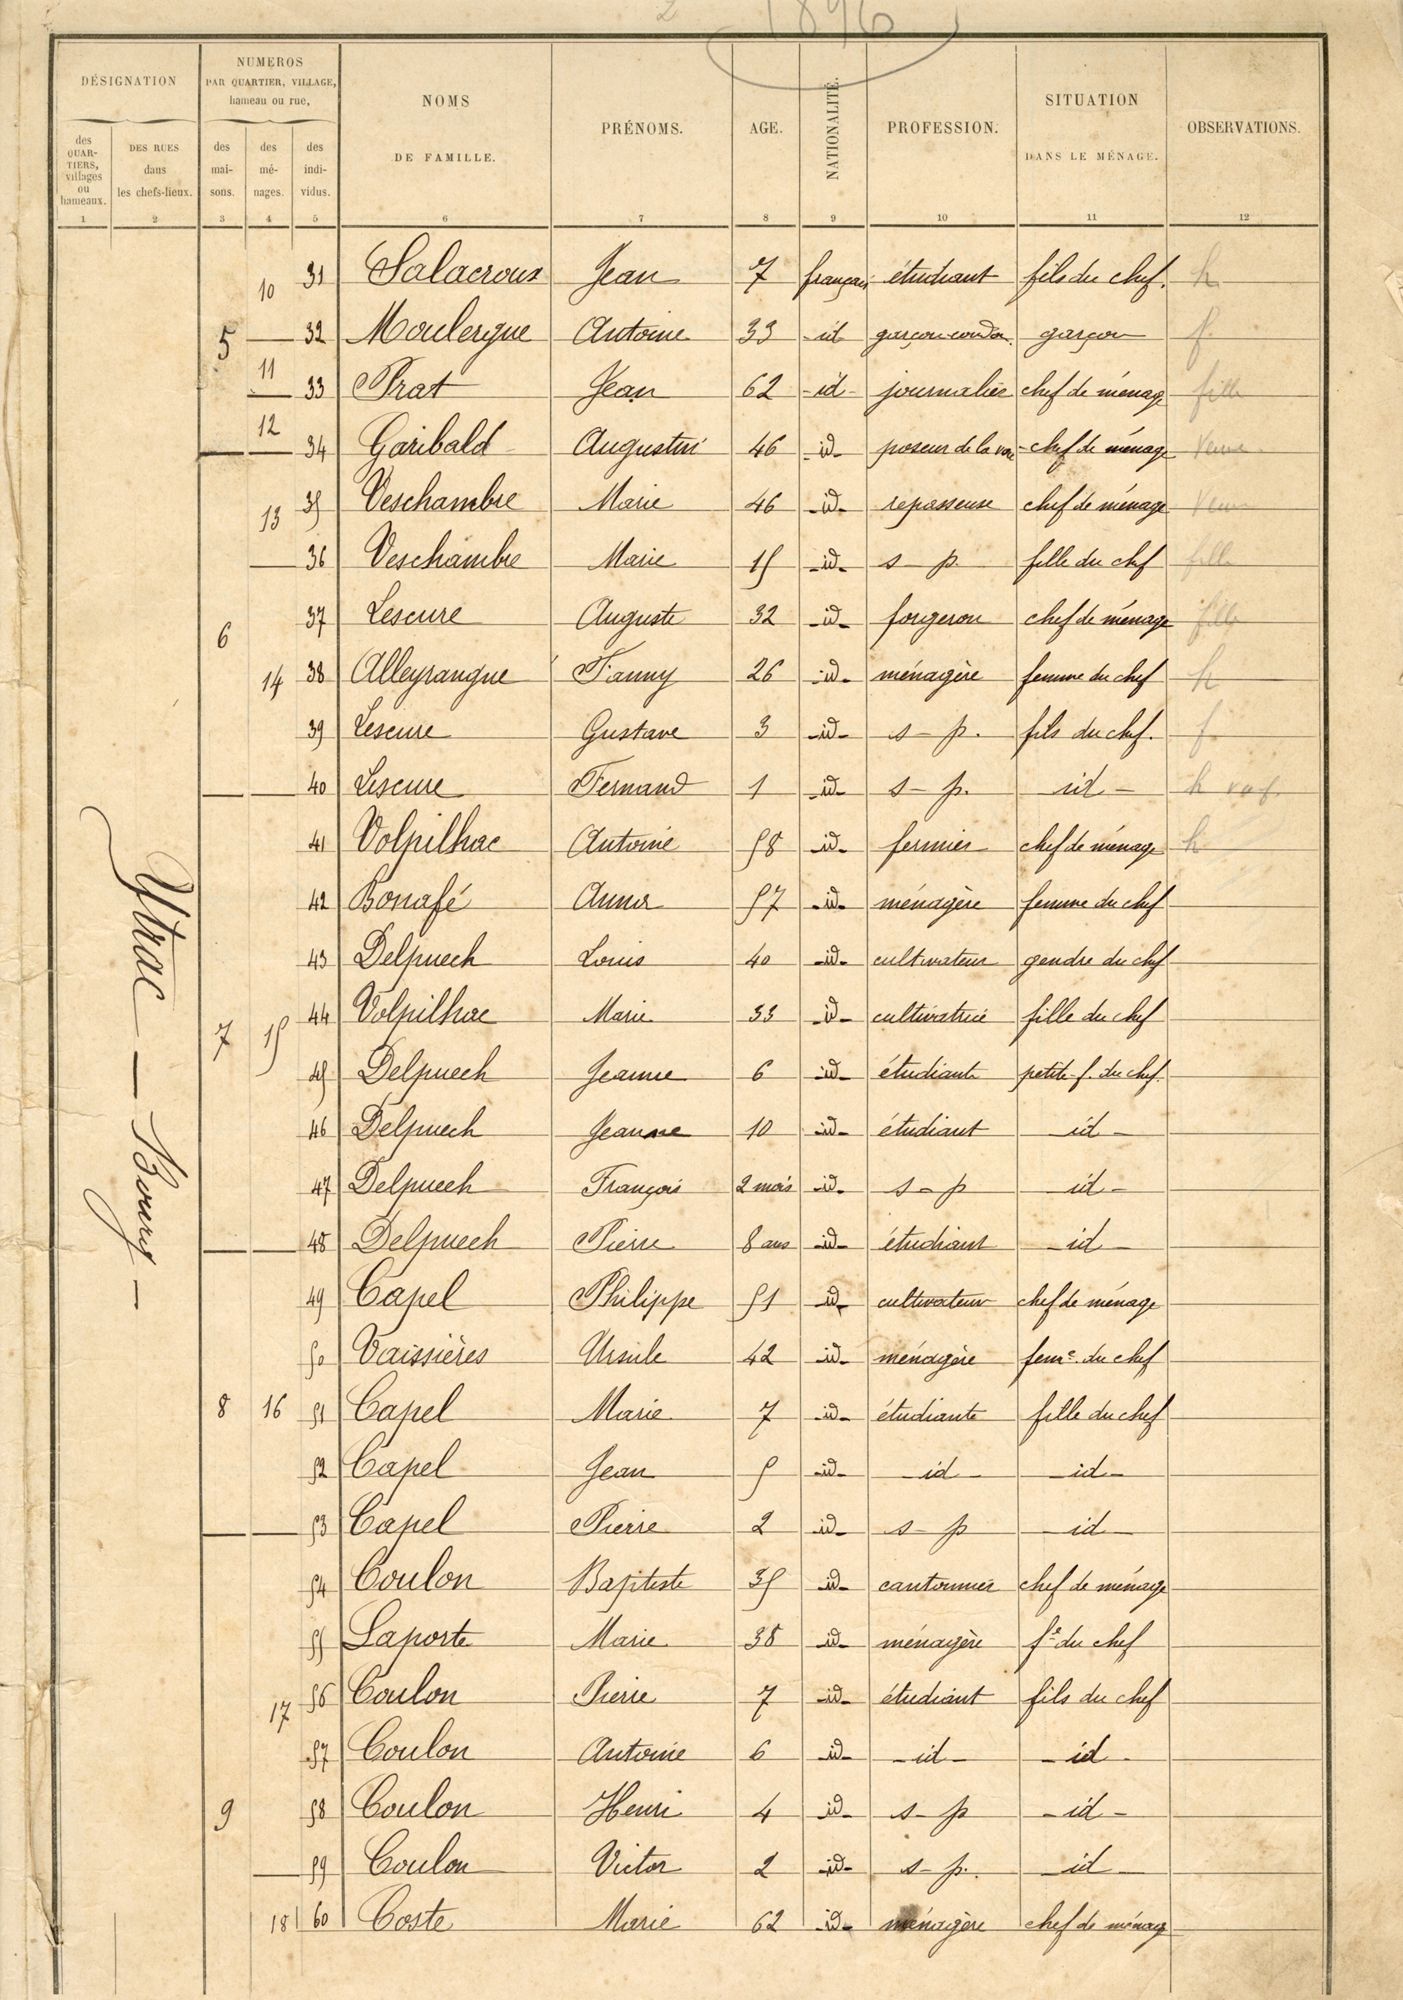 2
1896
DÉSIGNATION
NUMEROS
PAR QUARTIER, VILLAGE,
hameau ou rue,
NOMS
DE FAMILLE.
PRÉNOMS.
AGE.
NATIONALITÉ.
PROFESSION.
SITUATION
DANS LE MÉNAGE.
OBSERVATIONS.
des QUAR-TIERS, villages ou hameaux.
DES RUES dans les chefs-lieux.
des mai-sons.
des mé-nages.
des indi-vidus.
1 2 3 4 5 6 7 8 9 10 11 12
Ytrac — Bourg —
10 31 Salacroux Jean 7 français étudiant fils du chef. h
5 32 Moulergue Antoine 33 id garçon garçon f
11 33 Prat Jean 62 id journalier chef de ménage fille
12 34 Garibald Augustin 46 id poseur de la voie chef de ménage veuve
13 35 Veschambre Marie 46 id repasseuse chef de ménage veuve
36 Veschambre Marie 15 id s - p. fille du chef fille
6 37 Lescure Auguste 32 id forgeron chef de ménage fille
14 38 Alleyrangue Fanny 26 id ménagère femme du chef h
39 Lescure Gustave 3 id s - p. fils du chef. f
40 Lescure Fernand 1 id s - p. id h
41 Volpilhac Antoine 58 id fermier chef de ménage h
42 Bonafé Anna 57 id ménagère femme du chef
43 Delpuech Louis 40 id cultivateur gendre du chef
7 15 44 Volpilhac Marie 33 id cultivatrice fille du chef
45 Delpuech Jeanne 6 id étudiante petite f. du chef
46 Delpuech Jeanne 10 id étudiant id
47 Delpuech François 2 mois id s - p id
48 Delpuech Pierre 8 ans id étudiant id
49 Capel Philippe 51 id cultivateur chef de ménage
50 Vaissières Ursule 42 id ménagère feme. du chef
8 16 51 Capel Marie 7 id étudiante fille du chef
52 Capel Jean 5 id id id
53 Capel Pierre 2 id s - p id
54 Coulon Baptiste 35 id cantonnier chef de ménage
55 Laporte Marie 38 id ménagère fe du chef
17 56 Coulon Pierre 7 id étudiant fils du chef
57 Coulon Antoine 6 id id id
9 58 Coulon Henri 4 id s - p id
59 Coulon Victor 2 id s - p. id
18 60 Coste Marie 62 id ménagère chef de ménag